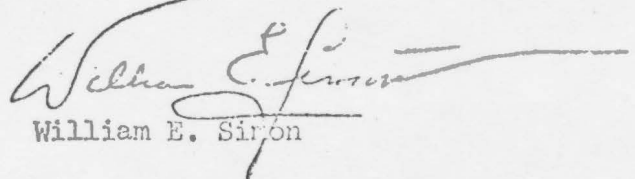 William E. Simon
William E. Simon